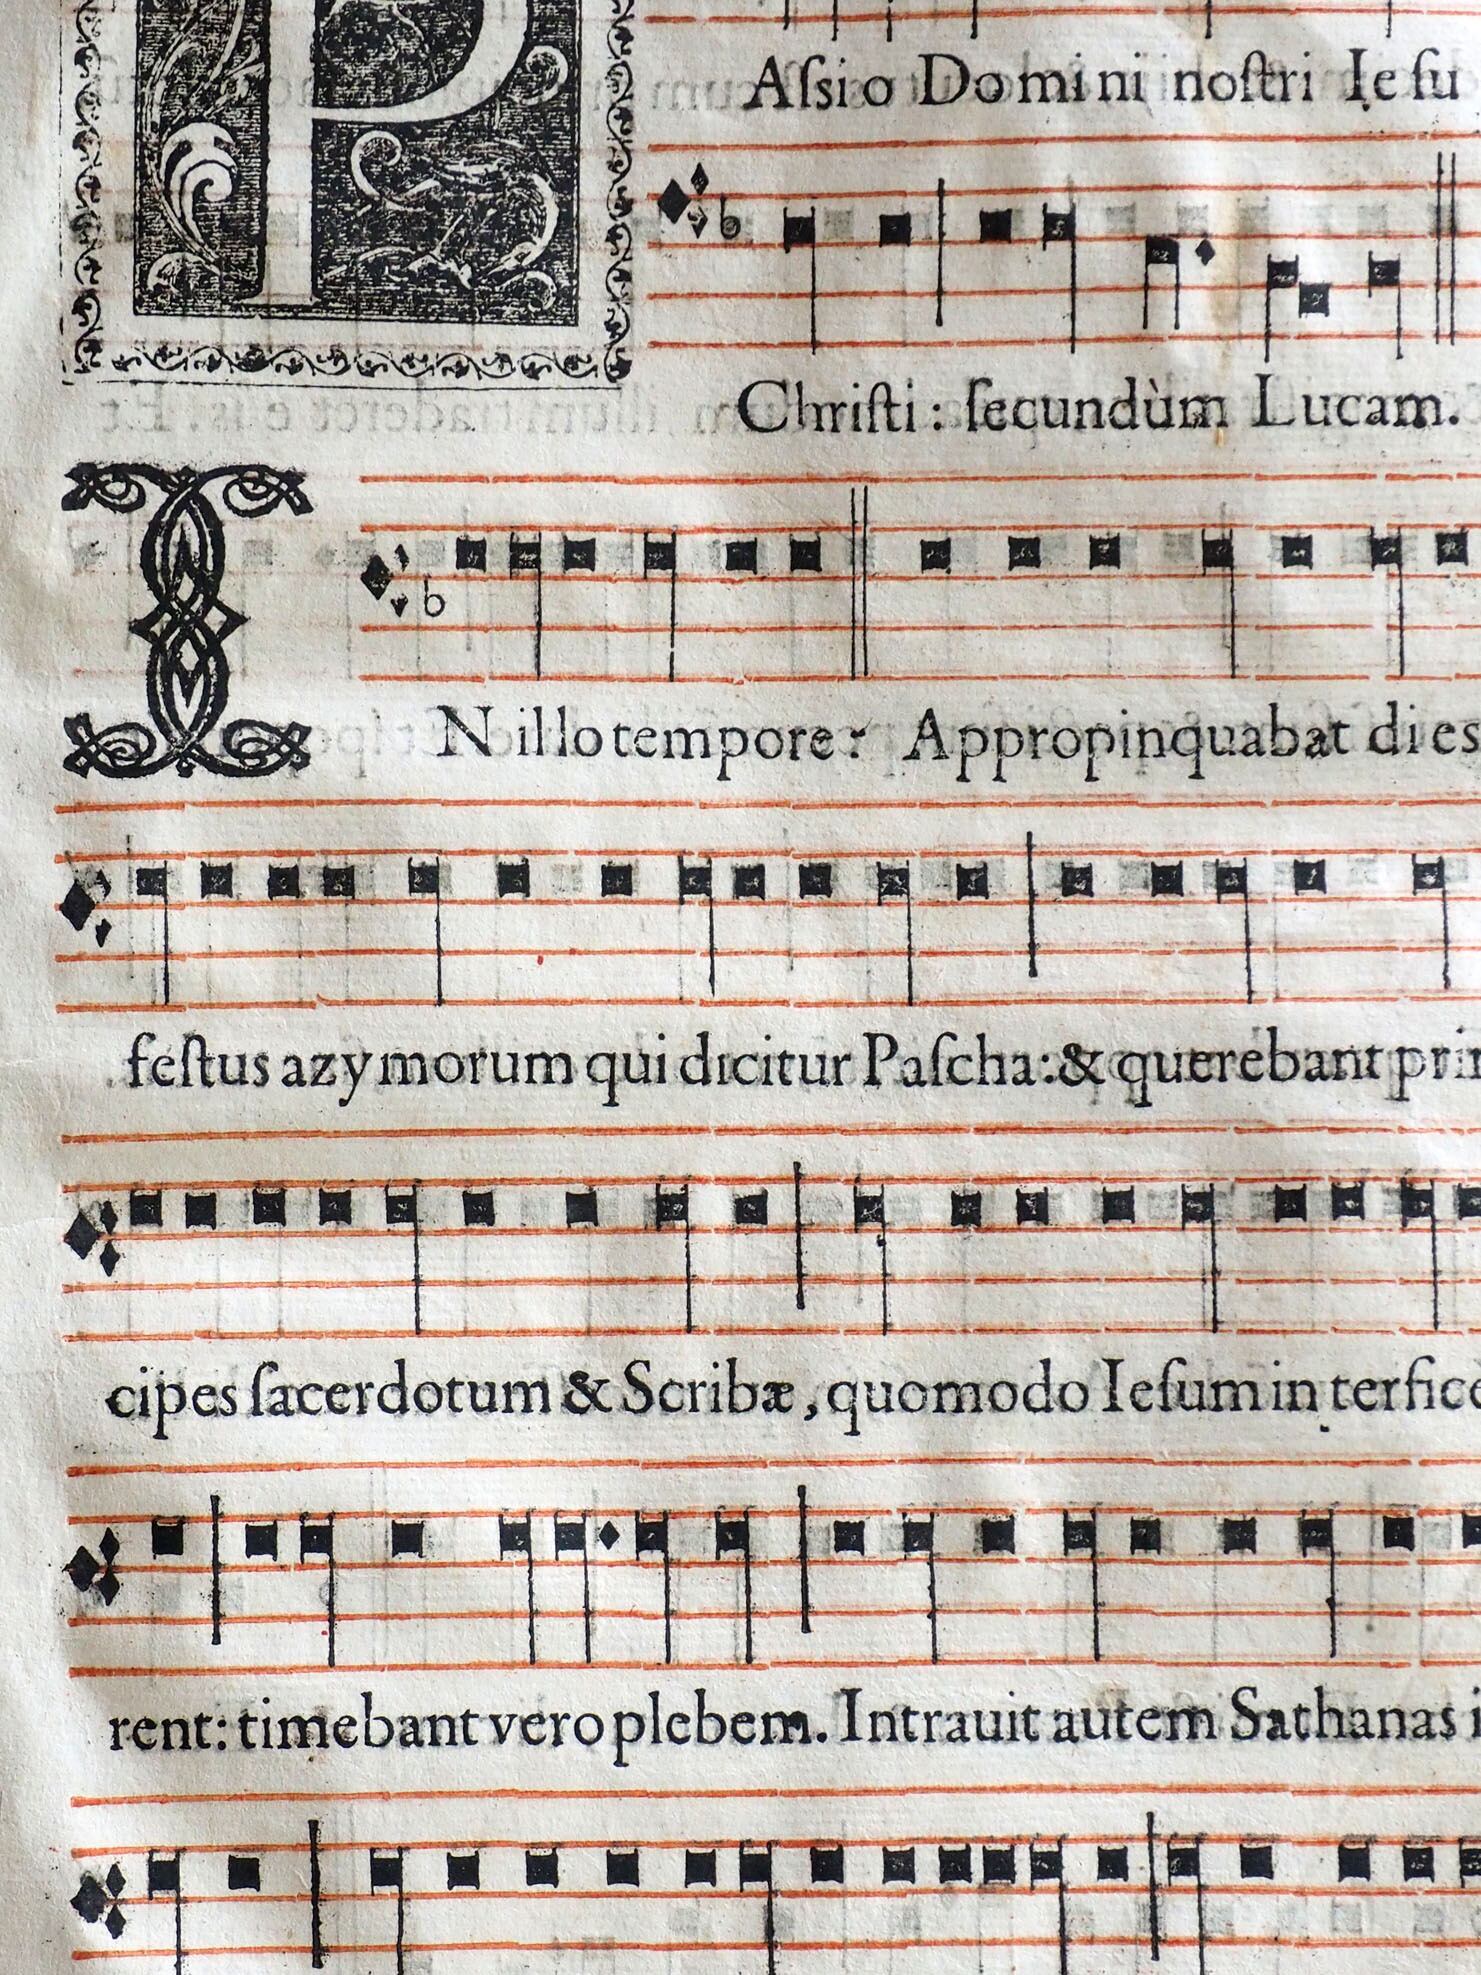 PAſsio Domini noſtri Ieſu
Chriſti: ſecundùm Lucam.
IN illo tempore: Appropinquabat dies
feſtus azymorum qui dicitur Paſcha: & querebant prin
cipes ſacerdotum & Scribæ, quomodo Ieſum interfice
rent: timebant vero plebem. Intrauit autem Sathanas i